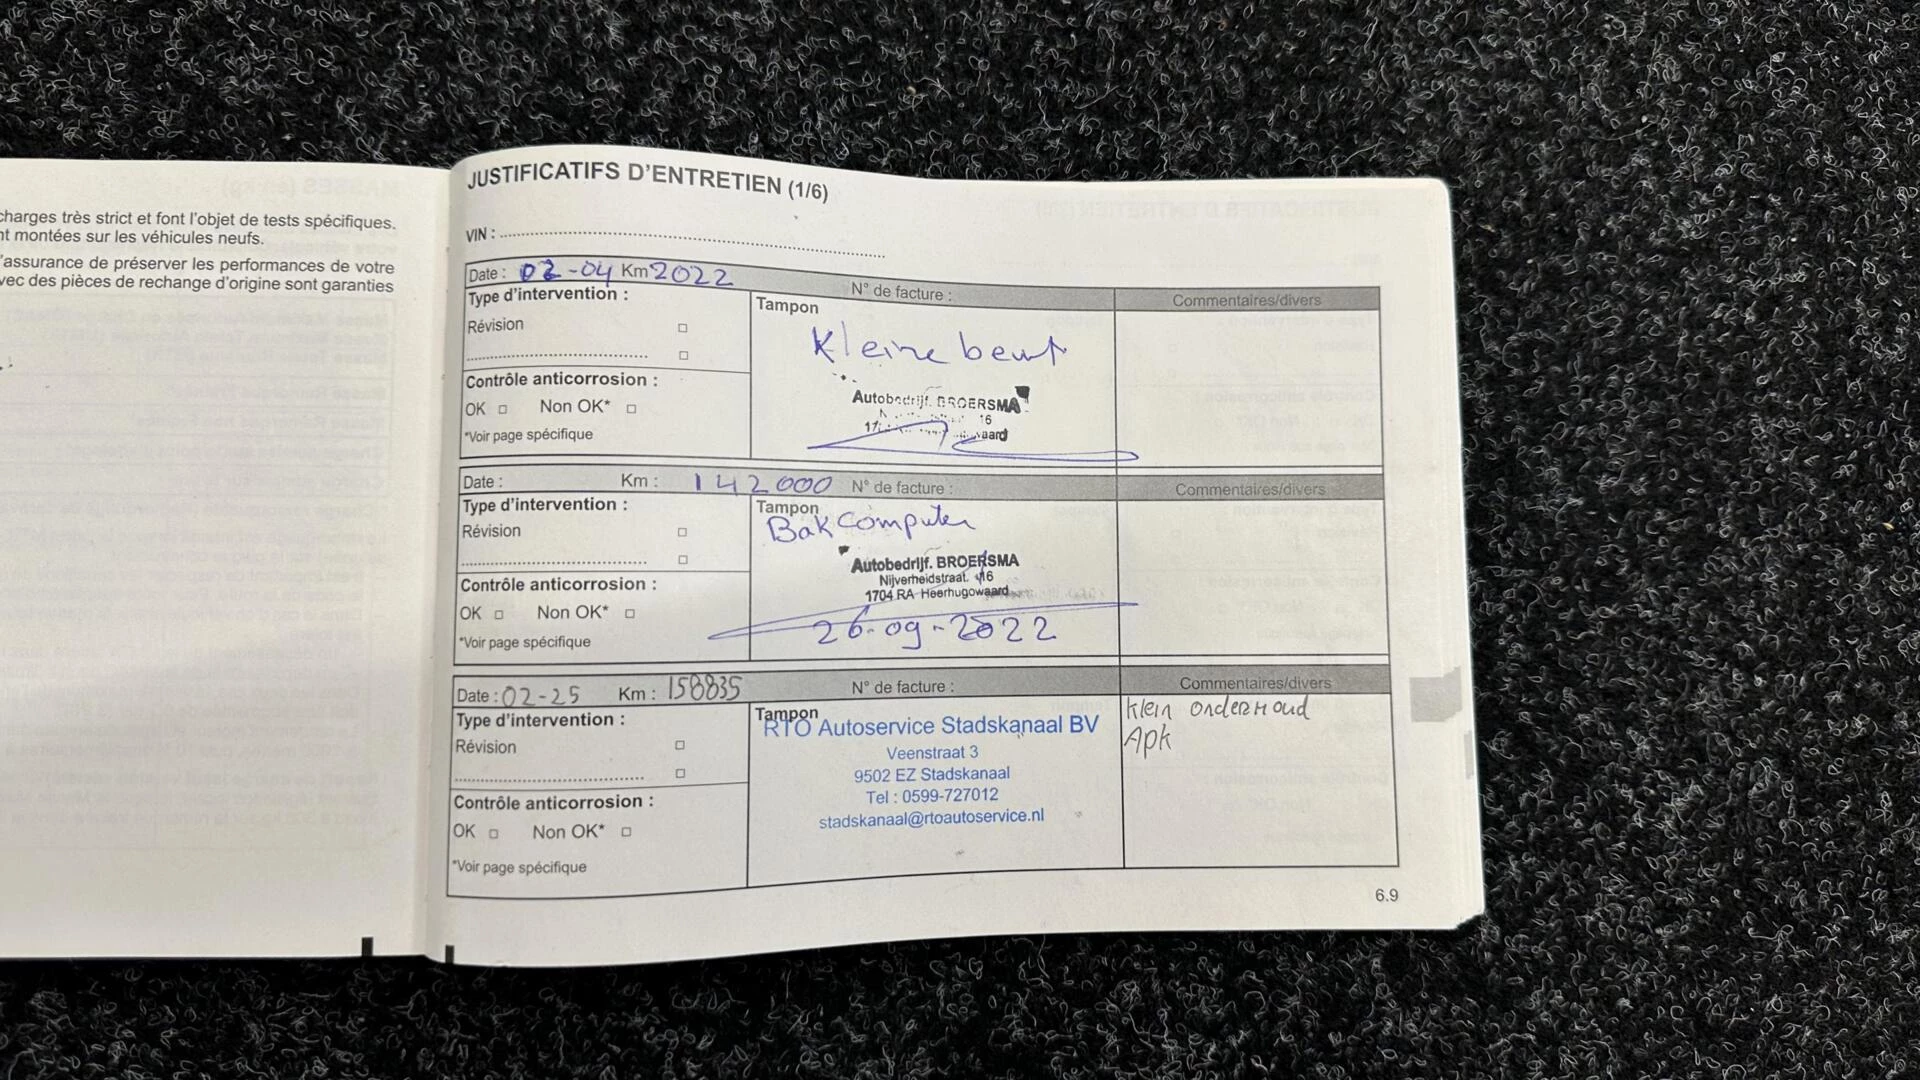 charges très strict et font l'objet de tests spécifiques.
nt montées sur les véhicules neufs.
'assurance de préserver les performances de votre
vec des pièces de rechange d'origine sont garanties
JUSTIFICATIFS D'ENTRETIEN (1/6)
VIN :
Date : 02-04 Km 2022 N° de facture : Commentaires/divers
Type d'intervention :
Révision
Tampon
Kleine beurt
Autobedrijf. BROERSMA
16
Contrôle anticorrosion :
OK Non OK*
*Voir page spécifique
Date : Km : 142000 N° de facture : Commentaires/divers
Type d'intervention :
Révision
Tampon
Bak computer
Autobedrijf. BROERSMA
Nijverheidstraat. 16
1704 RA Heerhugowaard
26-09-2022
Contrôle anticorrosion :
OK Non OK*
*Voir page spécifique
Date : 02-25 Km : 158835 N° de facture : Commentaires/divers
Type d'intervention :
Révision
Tampon
RTO Autoservice Stadskanaal BV
Veenstraat 3
9502 EZ Stadskanaal
Tel : 0599-727012
stadskanaal@rtoautoservice.nl
Klein onderhoud
Apk
Contrôle anticorrosion :
OK Non OK*
*Voir page spécifique
6.9